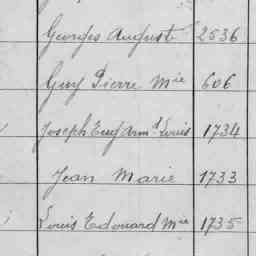 Georges August 2536
Guy Pierre Mie 606
Joseph Eug Armd Louis 1734
Jean Marie 1733
Louis Edouard Mie 1735